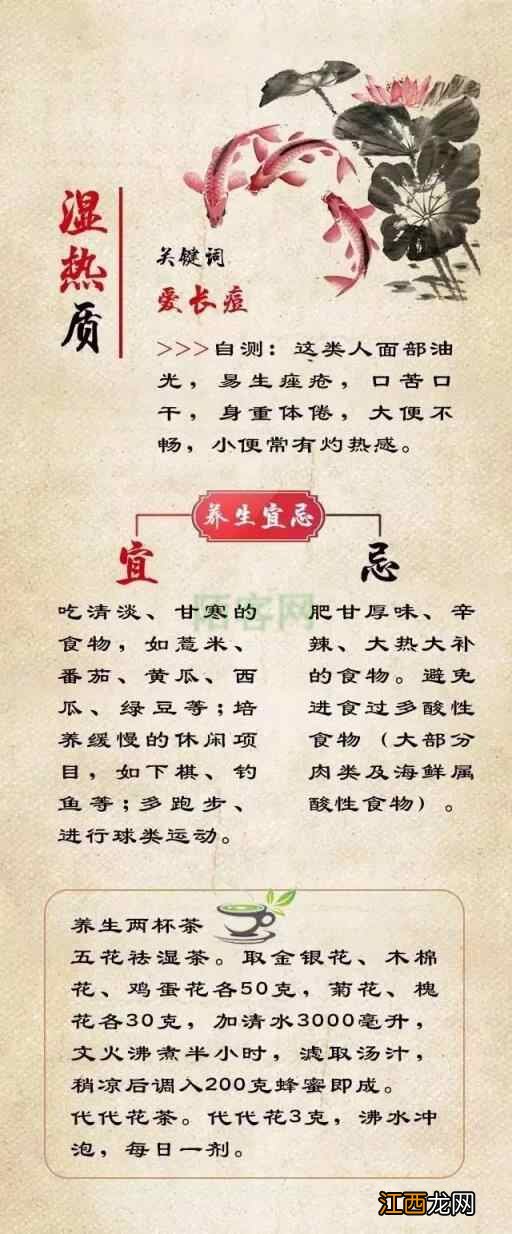 湿热质
关键词
爱长痘
>>>自测：这类人面部油
光，易生痤疮，口苦口
干，身重体倦，大便不
畅，小便常有灼热感。
养生宜忌
宜
吃清淡、甘寒的
食物，如薏米、
番茄、黄瓜、西
瓜、绿豆等;培
养缓慢的休闲项
目，如下棋、钓
鱼等;多跑步、
进行球类运动。
忌
肥甘厚味、辛
辣、大热大补
的食物。避免
进食过多酸性
食物（大部分
肉类及海鲜属
酸性食物）。
陌客网
养生两杯茶
五花祛湿茶。取金银花、木棉
花、鸡蛋花各50克，菊花、槐
花各30克，加清水3000毫升，
文火沸煮半小时，滤取汤汁，
稍凉后调入200克蜂蜜即成。
代代花茶。代代花3克，沸水冲
泡，每日一剂。
江西龙网